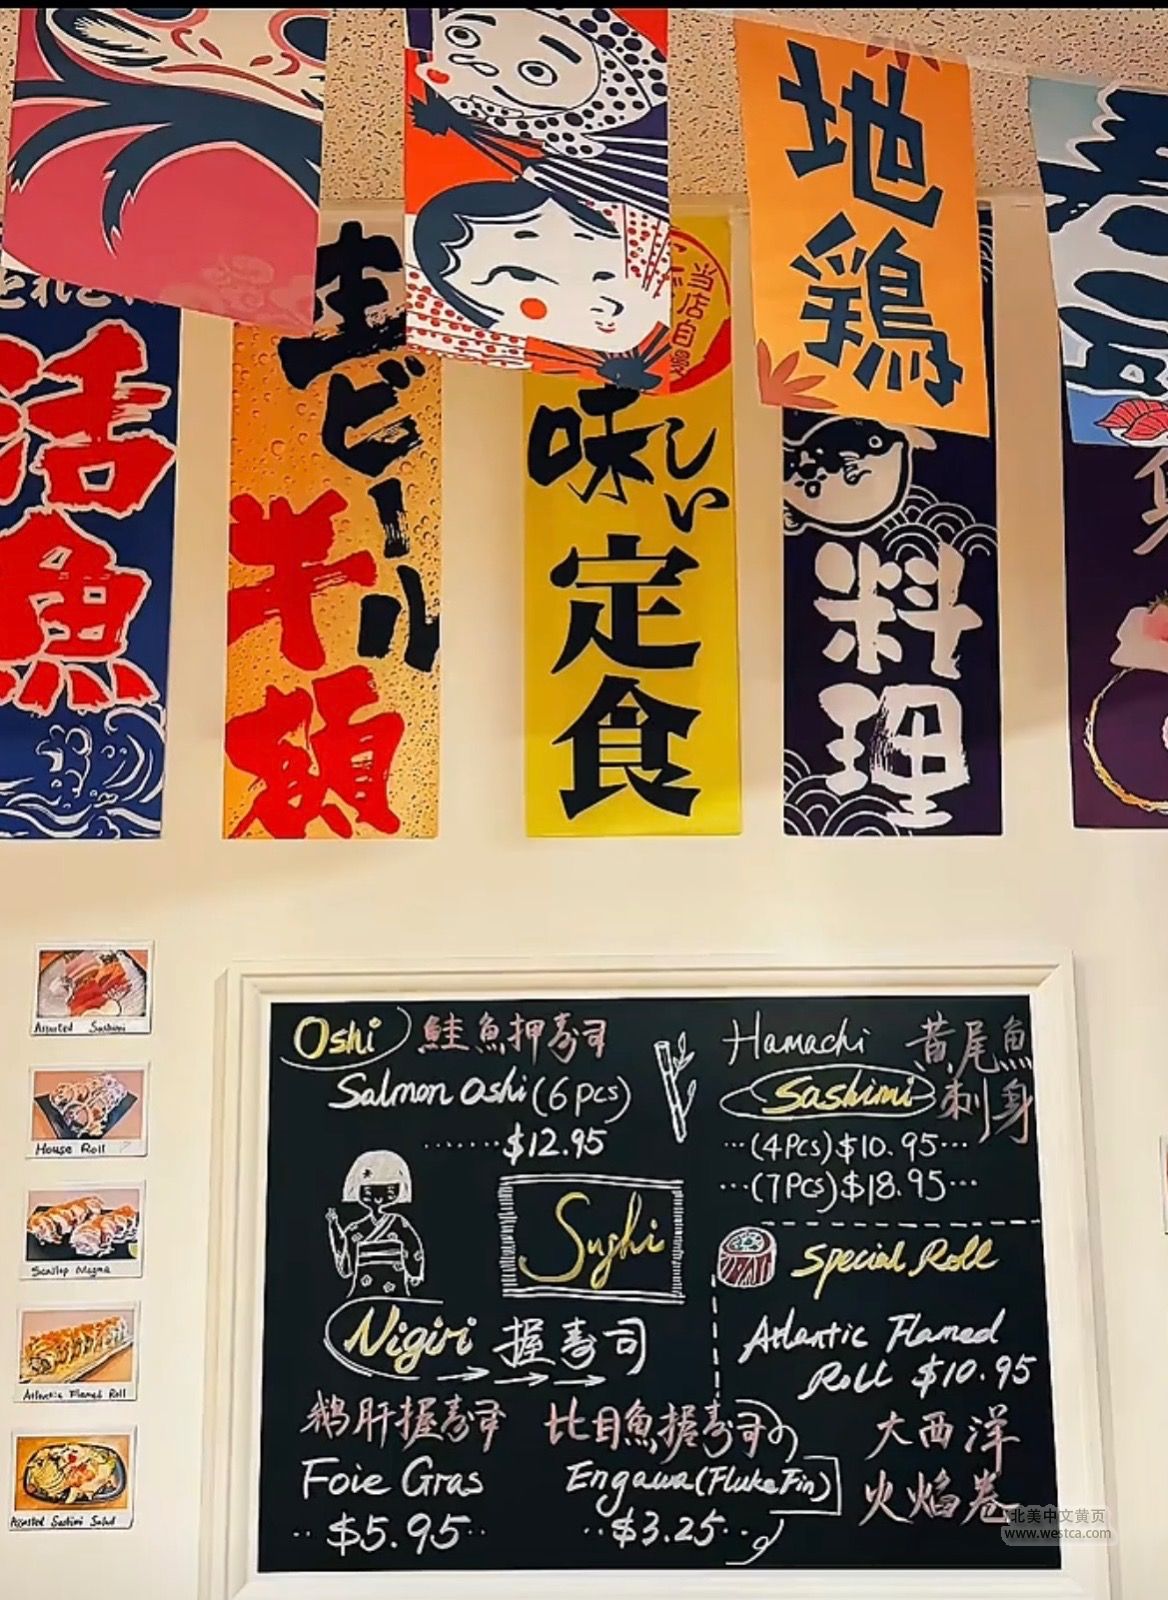 地鶏
当店自慢
活魚
生ビール
半額
味しい
定食
料理
Assorted Sashimi
House Roll
Atlantic Flamed Roll
Assorted Sashimi Salad
Oshi 鮭魚押寿司
Salmon Oshi (6pcs)
.......$12.95
Hamachi 黄尾魚
Sashimi 刺身
...(4Pcs)$10.95...
...(7Pcs)$18.95...
Sushi
Special Roll
Atlantic Flamed
Roll $10.95
大西洋
火焰卷
Nigiri 握寿司
鹅肝握寿司
Foie Gras
..$5.95..
比目魚握寿司
Engawa(Fluke Fin)
..$3.25..
北美中文黄页
www.westca.com